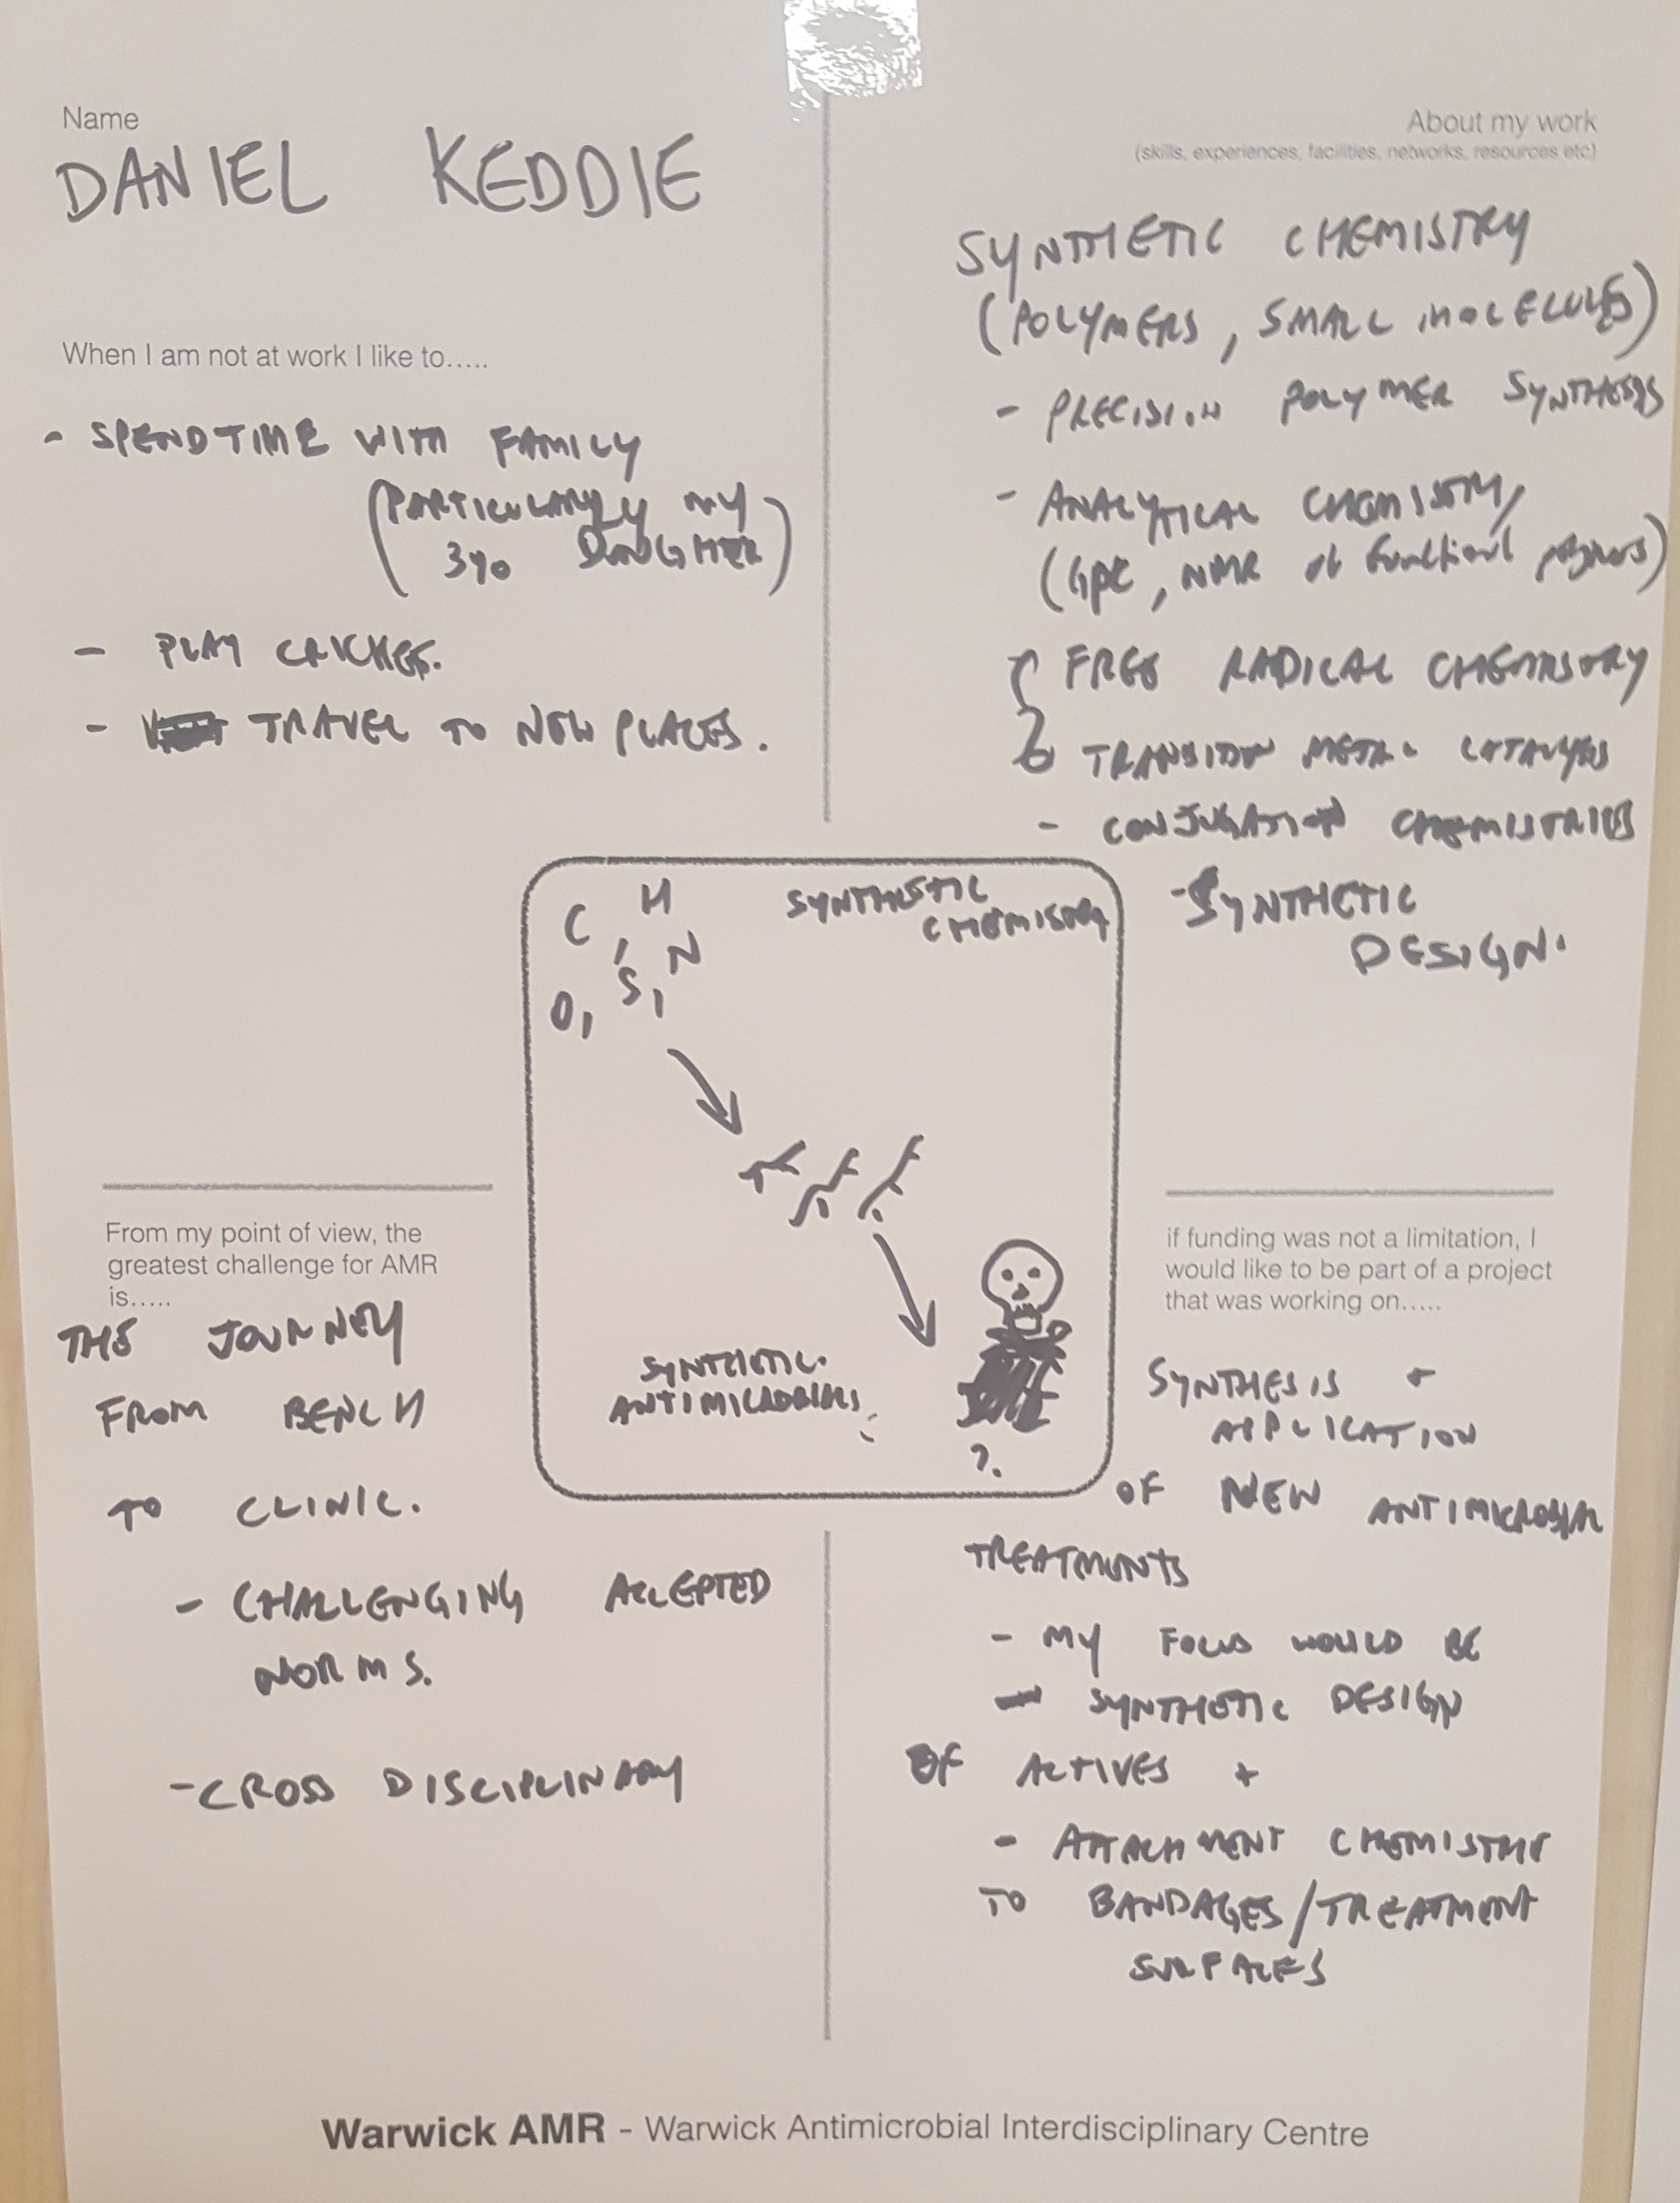 Name
DANIEL KEDDIE
When I am not at work I like to.....
- SPEND TIME WITH FAMILY
(PARTICULARLY MY
3yo DAUGHTER)
- PLAY CRICKET.
- TRAVEL TO NEW PLACES.
About my work
(skills, experiences, facilities, networks, resources etc)
SYNTHETIC CHEMISTRY
(POLYMERS, SMALL MOLECULES)
- PRECISION POLYMER SYNTHESIS
- ANALYTICAL CHEMISTRY
(GPC, NMR of functional polymers)
FREE RADICAL CHEMISTRY
TRANSITION METAL CATALYSIS
- CONJUGATION CHEMISTRIES
- SYNTHETIC
DESIGN.
C, H
O, S, N
SYNTHETIC
CHEMISTRY
SYNTHETIC
ANTIMICROBIALS
?.
From my point of view, the
greatest challenge for AMR
is.....
THE JOURNEY
FROM BENCH
TO CLINIC.
- CHALLENGING ACCEPTED
NORMS.
- CROSS DISCIPLINARY
if funding was not a limitation, I
would like to be part of a project
that was working on.....
SYNTHESIS +
APPLICATION
OF NEW ANTIMICROBIAL
TREATMENTS
- MY FOCUS WOULD BE
SYNTHETIC DESIGN
OF ACTIVES +
- ATTACHMENT CHEMISTRY
TO BANDAGES/TREATMENT
SURFACES
Warwick AMR - Warwick Antimicrobial Interdisciplinary Centre